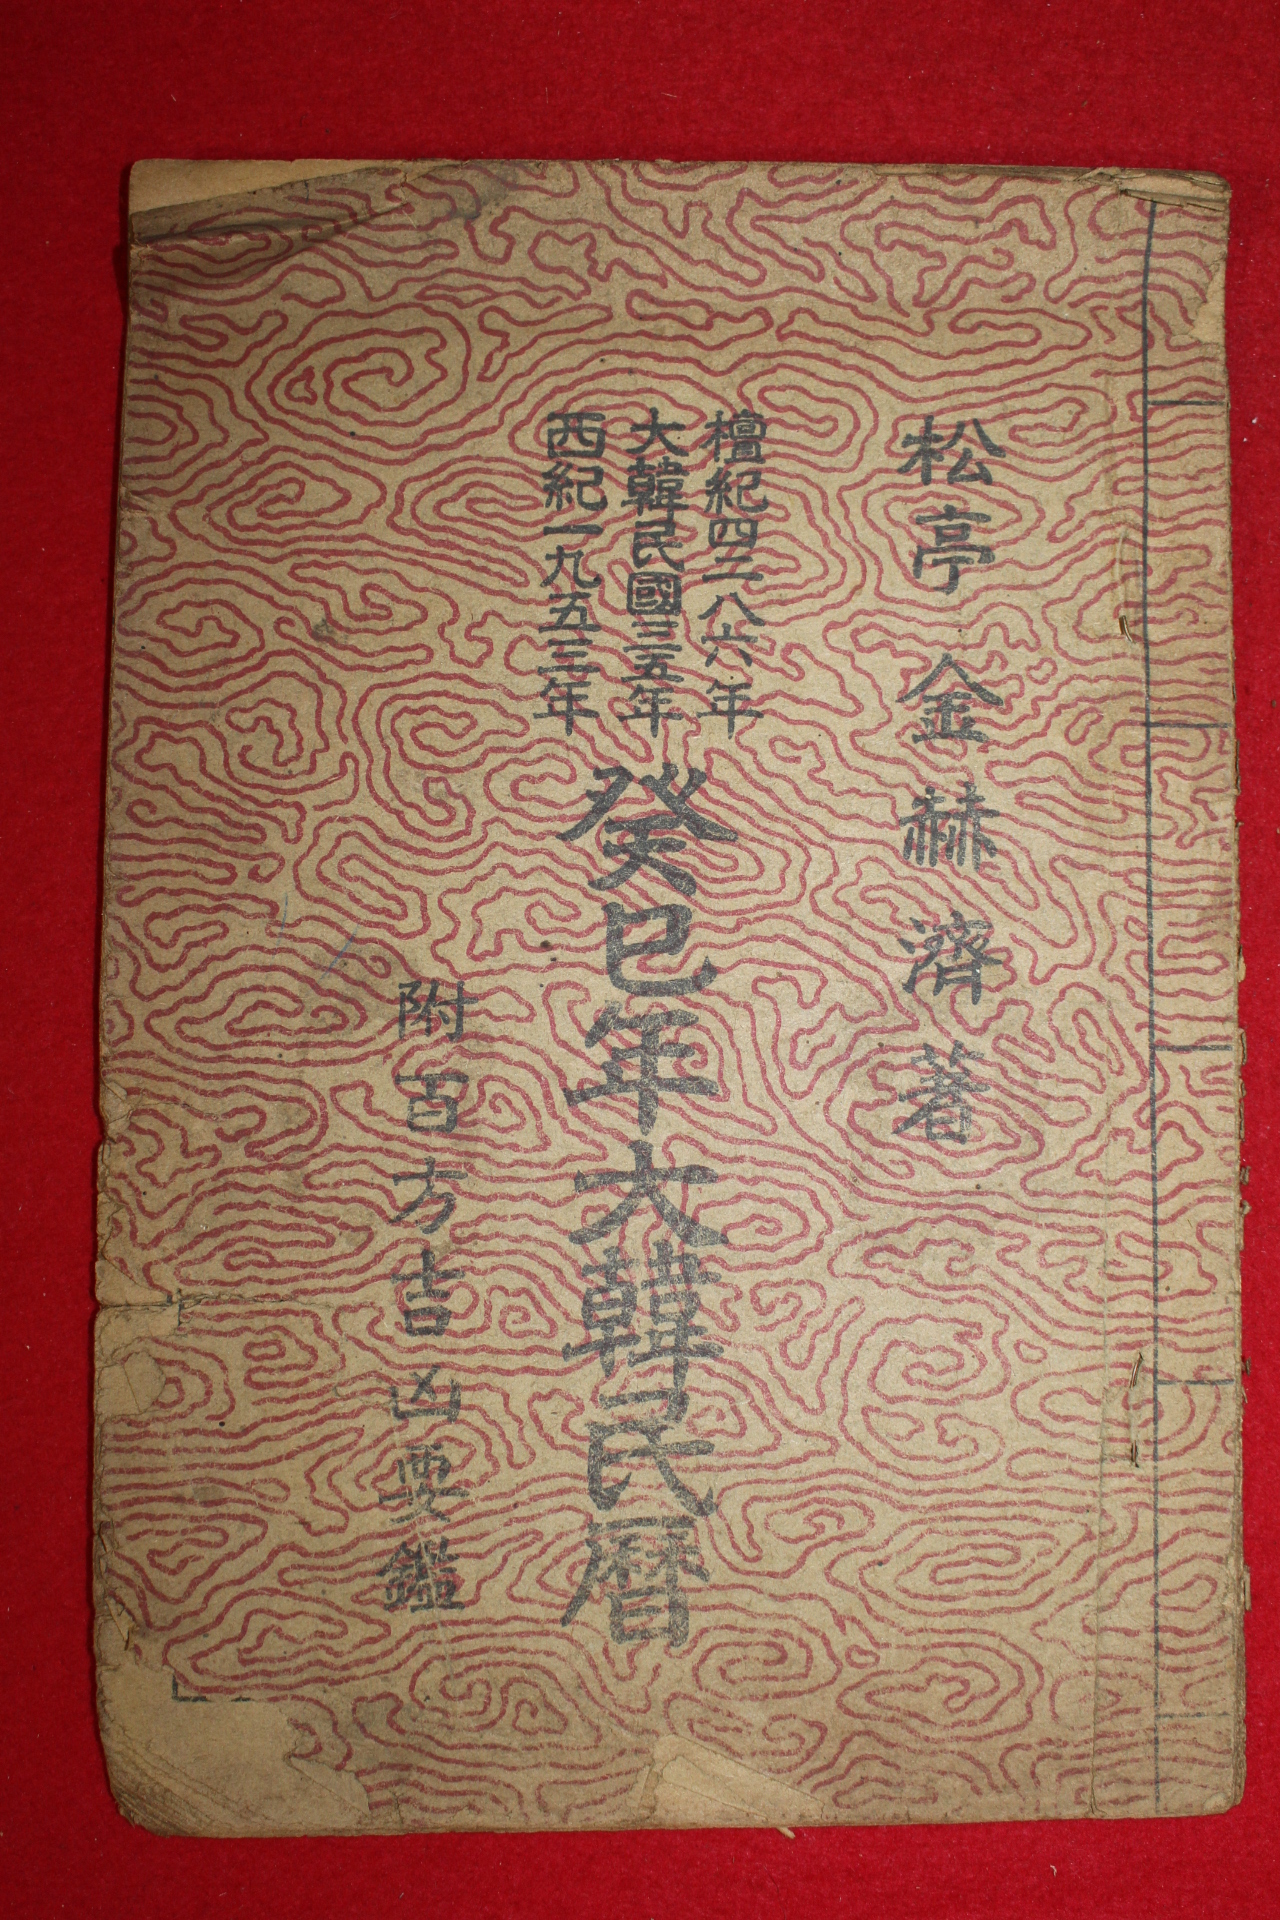 松亭 金赫濟 著
檀紀四二八六年
大韓民國三五年
西紀一九五三年
癸巳年大韓民暦
附百方吉凶要鑑